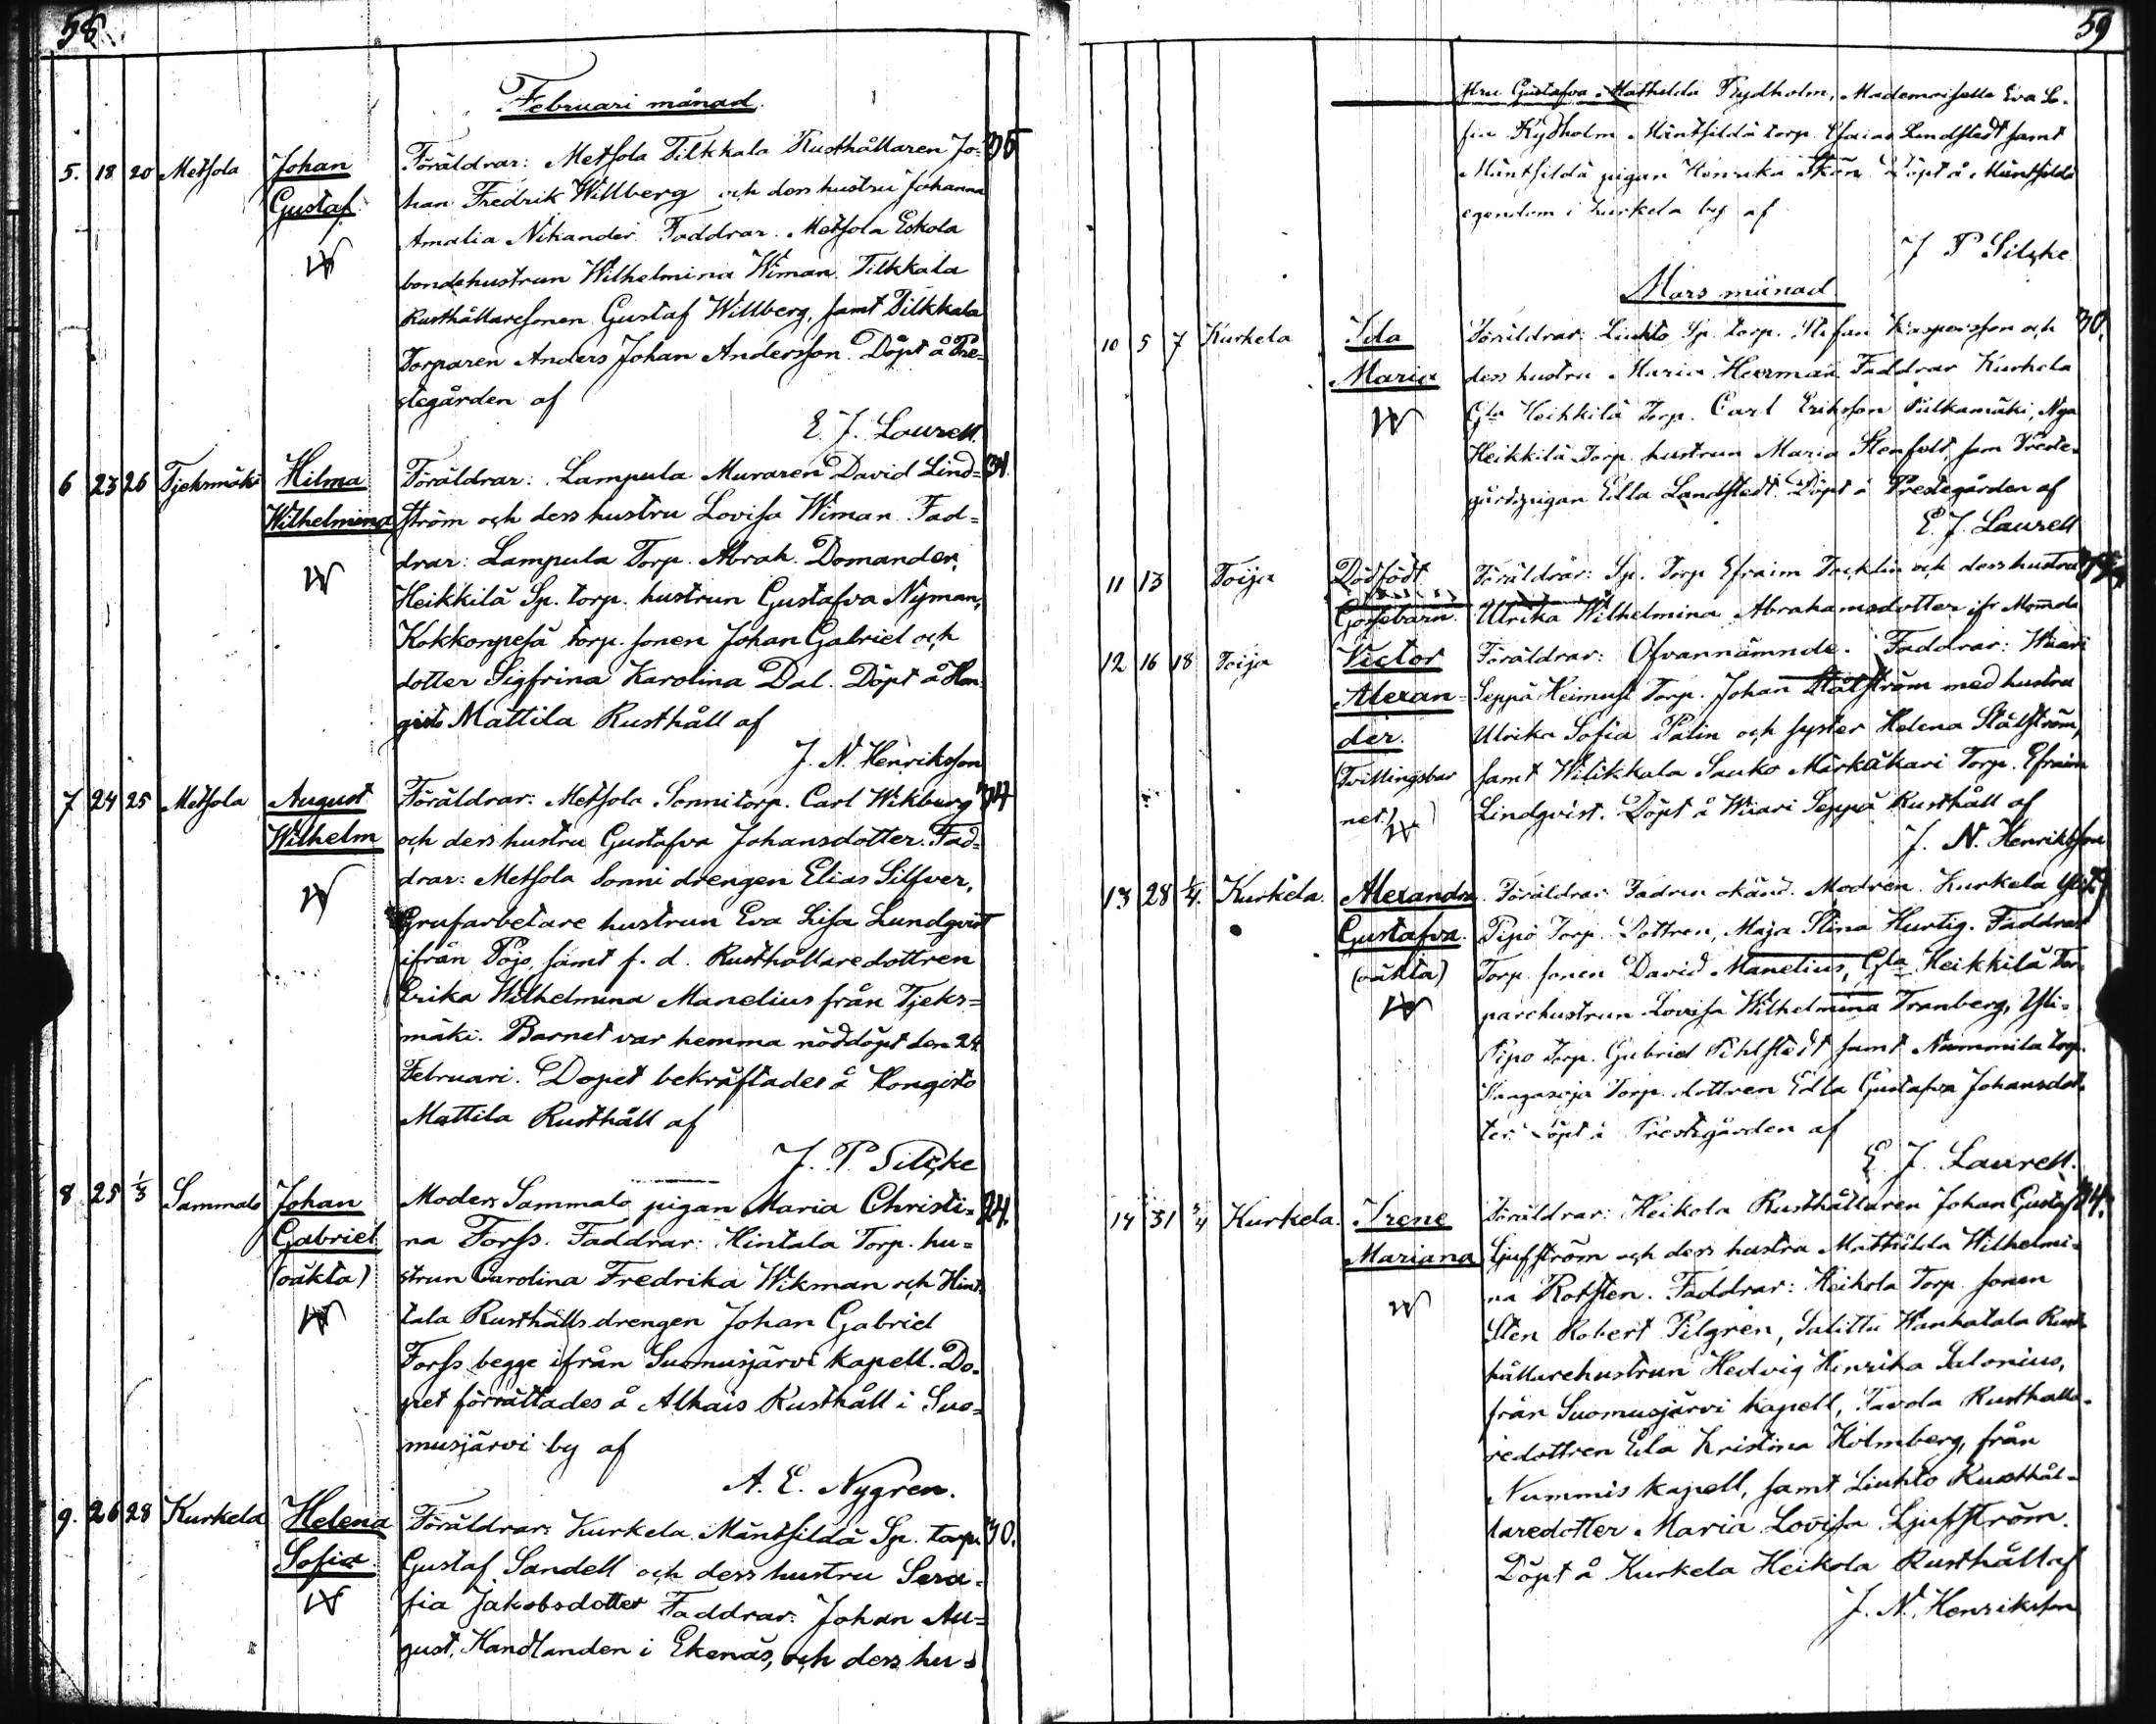 58
Februari månad.
5. 18 20 Metsola Johan Gustaf
Föräldrar: Metsola Tilkkala Rusthållaren Jo- 35
han Fredrik Willberg och dess hustru Johanna
Amalia Nikander. Faddrar: Metsola Eskola
bondehustrun Wilhelmina Wiman. Tilkkala
Rusthållaresonen Gustaf Willberg, samt Tilkkala
Torparen Anders Johan Andersson. Döpt å Pre-
stegården af
E. J. Laurell.
6 23 26 Tjeksmäki Hilma Wilhelmina
Föräldrar: Lampula Muraren David Lind=
ström och dess hustru Lovisa Wiman. Fad=
drar: Lampula Torp. Abrah. Domander,
Heikkilä Sp. torp. hustrun Gustafva Nyman,
Kokkonpesä torp. sonen Johan Gabriel och
dotter Sigfrina Karolina Dal. Döpt å Hon
gisto Mattila Rusthåll af
J. N. Henriksson
7 24 25 Metsola August Wilhelm
Föräldrar: Metsola Sonni torp. Carl Wikburg 34
och dess hustru Gustafva Johansdotter. Fad=
drar: Metsola Sonni drengen Elias Silfver,
Grufarbetare hustrun Eva Lisa Lundqvist
ifrån Pojo, samt f. d. Rusthållaredottren
Erika Wilhelmina Manelius från Tjeks=
mäki. Barnet var hemma nöddöpt den 24
Februari. Dopet bekräftades å Hongisto
Mattila Rusthåll af
J. P. Silcke
8 25 1/3 Sammalo Johan Gabriel (oäkta)
Moder: Sammalo pigan Maria Christi= 24.
na Forss. Faddrar: Hintala Torp. hu=
strun Carolina Fredrika Wikman och Hin=
tala Rusthålls drengen Johan Gabriel
Forss begge ifrån Suomusjärvi kapell. Do-
pet förrättades å Alhais Rusthåll i Suo=
musjärvi by af
A. E. Nygren.
9. 26 28 Kurkela Helena Sofia
Föräldrar: Kurkela Mäntsildä Sp. torp. 30.
Gustaf Sandell och dess hustru Sera=
fia Jakobsdotter Faddrar: Johan Au=
gust, Handlanden i Ekenäs, och dess hu=
59
stru Gustafva Mathilda Rydholm, Mademoiselle Eva So-
fia Rydholm Mäntsildä torp. Esaias Lindstedt samt
Mäntsildä pigan Henrika Skön. Döpt å Mäntsildä
egendom i Kurkela by af
J P Silcke.
Mars månad
10 5 7 Kurkela Ida Maria
Föräldrar: Liuhto Sp. torp. Stefan Kaspersson och 30.
dess hustru Maria Herrman. Faddrar Kurkela
Gla Heikkilä Torp. Carl Eriksson Pulkamäki, Nya
Heikkilä Torp. hustrun Maria Stenfelt, sam Preste-
gårdspigan Edla Landstedt. Döpt å Prestegården af
E. J. Laurell
11 13 Toija Dödfödt Gossebarn.
Föräldrar: Sp. Torp Efraim Tacklin och dess hustru
Ulrika Wilhelmina Abrahamsdotter
12 16 18 Toija Victor Alexan=der. (Tvillingsbar net.)
Föräldrar: Ofvannämnde. Faddrar: Wiiari
Seppä Heimust Torp. Johan Stålström med hustru
Ulrika Sofia Palin och syster Helena Stålström,
samt Wilikkala Sauko Märkäkari Torp. Efraim
Lindqvist. Döpt å Wiiari Seppä Rusthåll af
J. N. Henriksson
13 28 1/4. Kurkela. Alexandra Gustafva. (oäkta)
Föräldrar: Fadren okänd. Modren. Kurkela Yli
Pipo Torp. Dottren, Maja Stina Hurtig. Faddrar
Torp. sonen David Manelius, Gla Heikkilä Tor-
parehustrun Lovisa Wilhelmina Tranberg, Yli-
Pipo Torp. Gabriel Pihlstedt samt Nummila torp.
Kangasoja Torp. dottren Edla Gustafva Johansdot-
ter. Döpt å Prestegården af
E. J. Laurell.
14 31 3/4 Kurkela. Irene Mariana
Föräldrar: Heikola Rusthållaren Johan Gustaf 34.
Ljufström och dess hustru Mathilda Wilhelmi-
na Rotsten. Faddrar: Heikola Torp. sonen
Sten Robert Pilgren, Salittu Wanhatalo Rust-
hållarehustrun Hedvig Henrika Salonius,
från Suomusjärvi kapell, Tavola Rusthålla-
redottren Eila Kristina Holmberg, från
Nummis kapell, samt Liuhto Rusthål-
laredotter Maria Lovisa Ljufström.
Döpt å Kurkela Heikola Rusthåll af
J. N. Henriksson